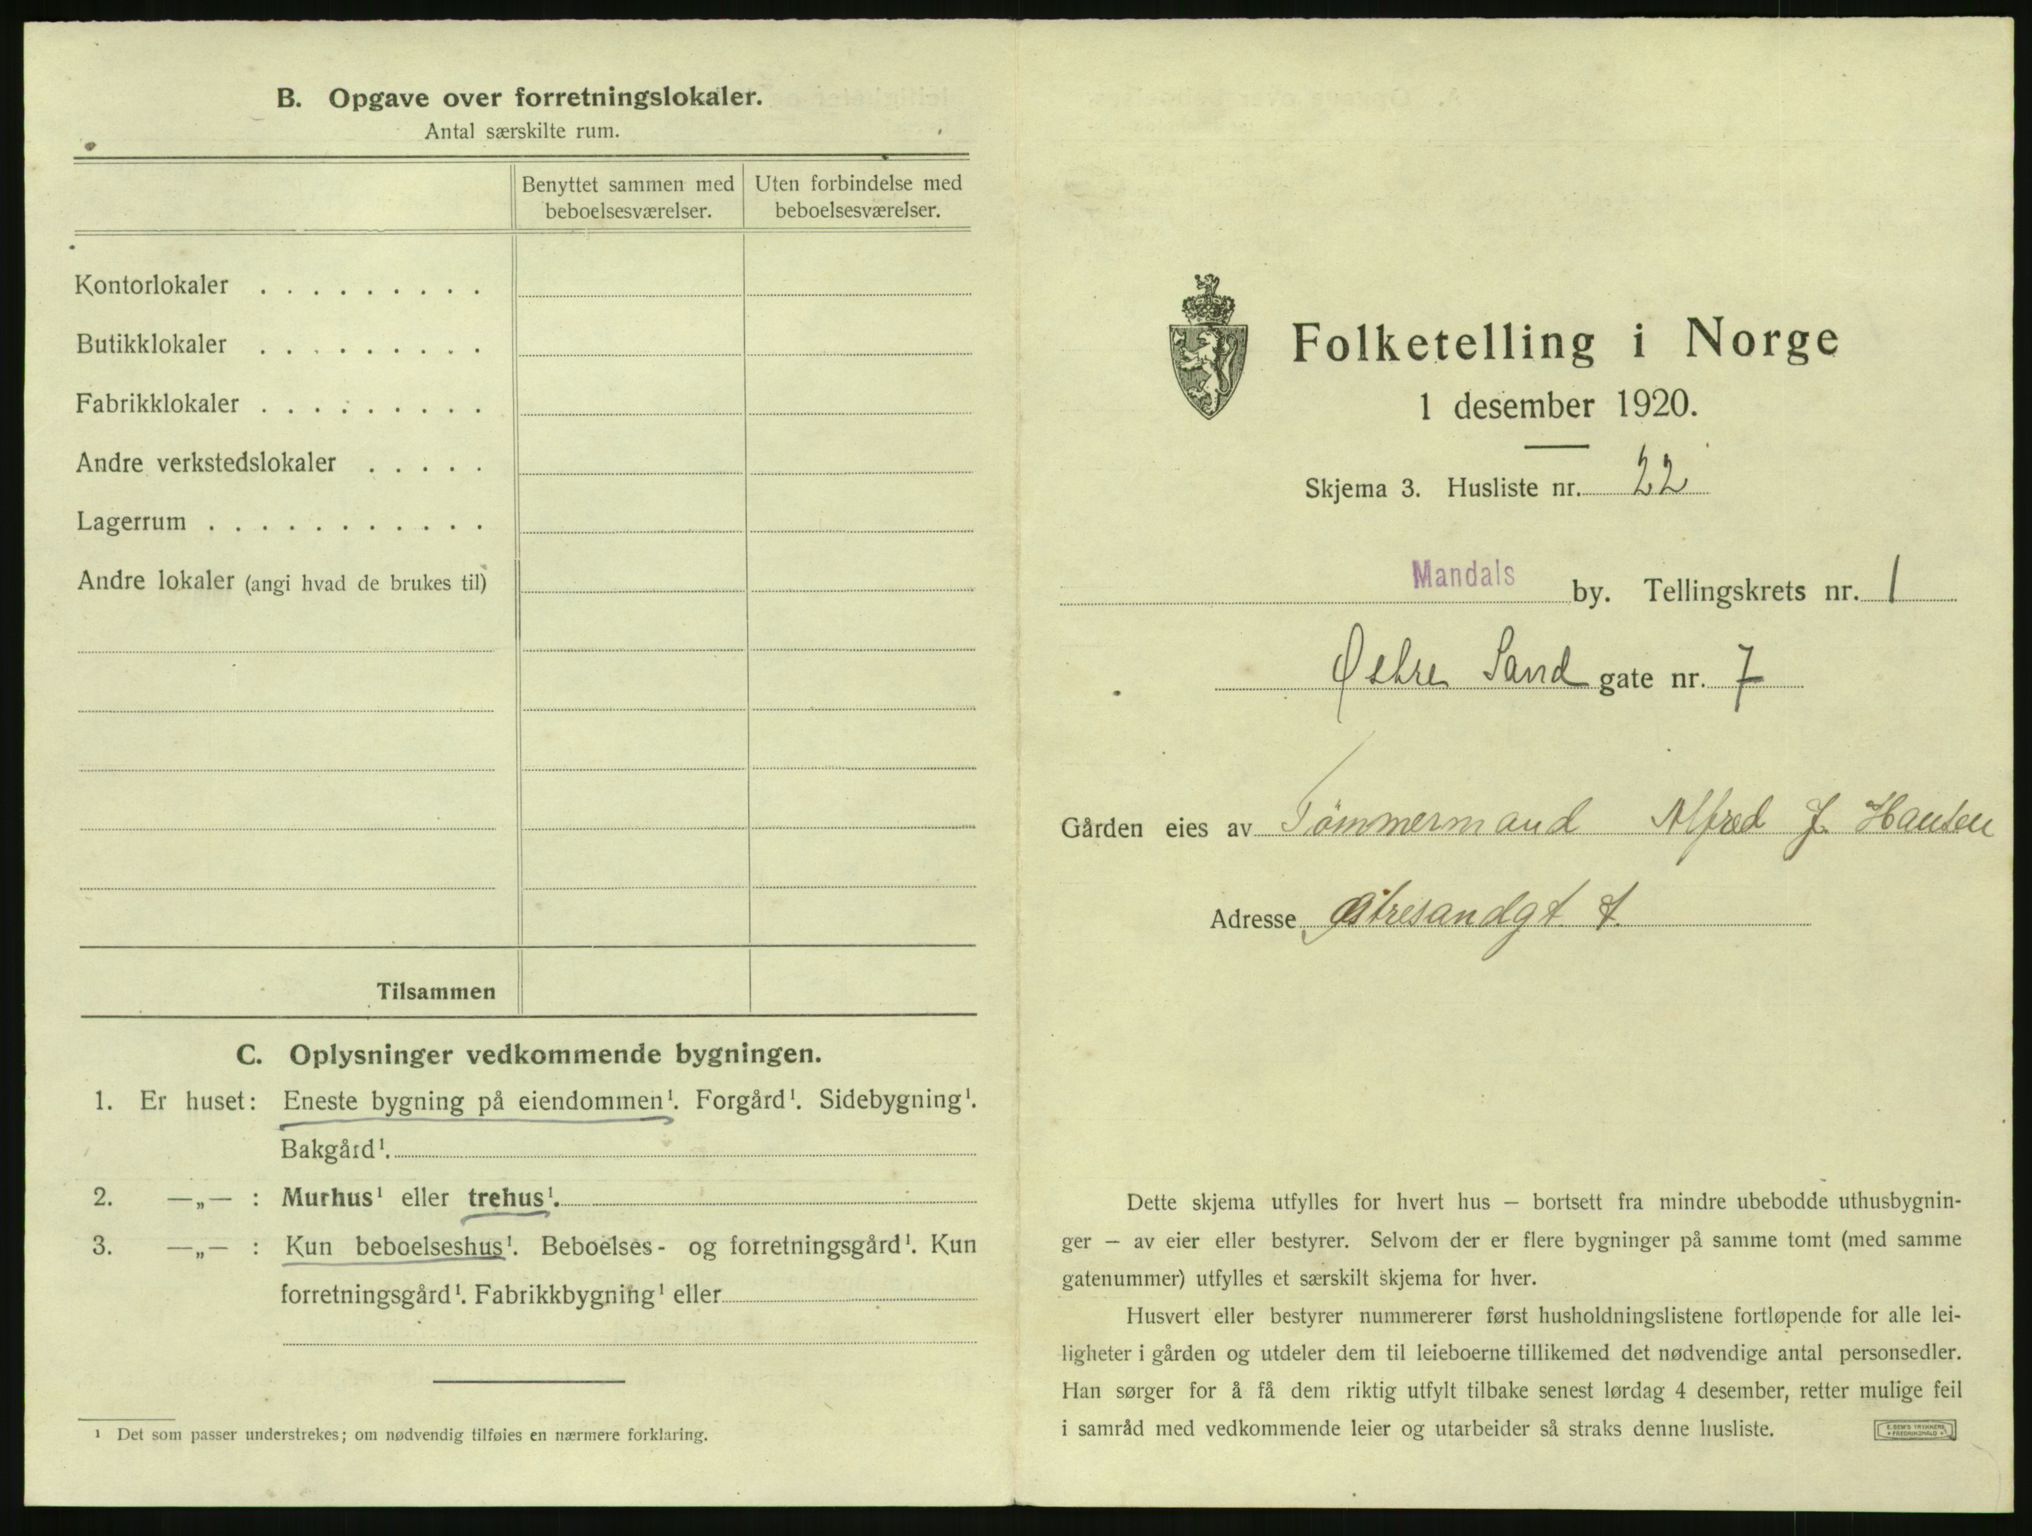 B. Opgave over forretningslokaler.
Antal særskilte rum.
Benyttet sammen med beboelsesværelser.
Uten forbindelse med beboelsesværelser.
Kontorlokaler . . . . . . . . .
Butikklokaler . . . . . . . . .
Fabrikklokaler . . . . . . . . .
Andre verkstedslokaler . . . . .
Lagerrum . . . . . . . . . . .
Andre lokaler (angi hvad de brukes til)
Tilsammen
C. Oplysninger vedkommende bygningen.
1. Er huset: Eneste bygning på eiendommen¹. Forgård¹. Sidebygning¹.
Bakgård¹.
2. —„— : Murhus¹ eller trehus¹.
3. —„— : Kun beboelseshus¹. Beboelses- og forretningsgård¹. Kun
forretningsgård¹. Fabrikkbygning¹ eller
¹ Det som passer understrekes; om nødvendig tilføies en nærmere forklaring.
Folketelling i Norge
1 desember 1920.
Skjema 3. Husliste nr. 22
Mandals by. Tellingskrets nr. 1
Østre Sand gate nr. 7
Gården eies av Tømmermand Alfred J. Hansen
Adresse Østresandgt. 7.
Dette skjema utfylles for hvert hus — bortsett fra mindre ubebodde uthusbygnin-
ger — av eier eller bestyrer. Selvom der er flere bygninger på samme tomt (med samme
gatenummer) utfylles et særskilt skjema for hver.
Husvert eller bestyrer nummererer først husholdningslistene fortløpende for alle lei-
ligheter i gården og utdeler dem til leieboerne tillikemed det nødvendige antal personsedler.
Han sørger for å få dem riktig utfylt tilbake senest lørdag 4 desember, retter mulige feil
i samråd med vedkommende leier og utarbeider så straks denne husliste.